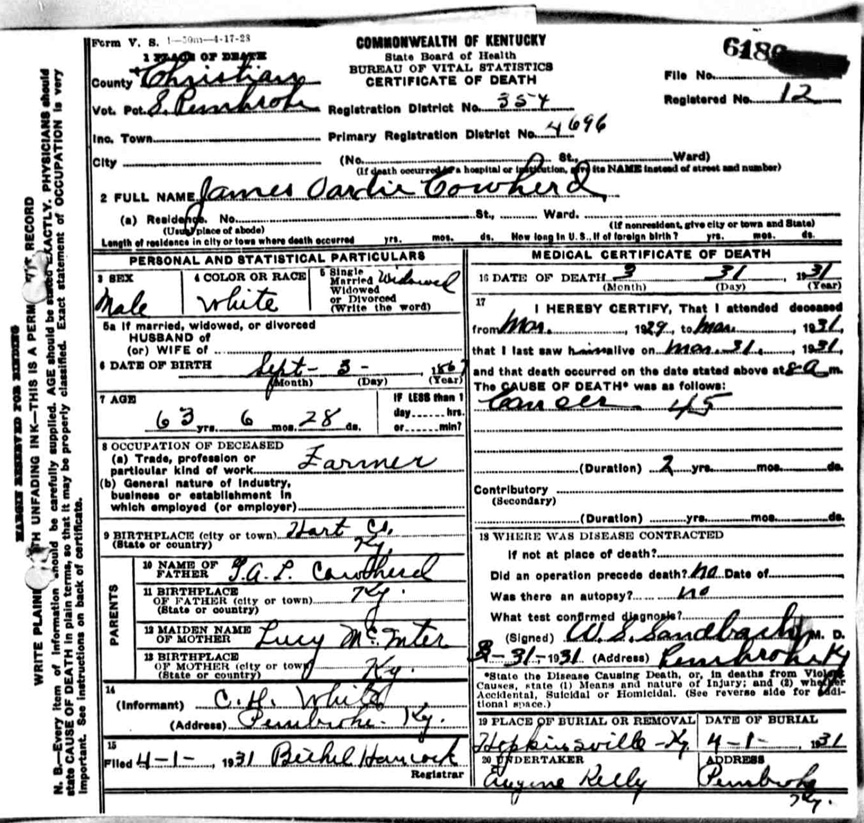 Form V. S. 1—50m—4-17-28
COMMONWEALTH OF KENTUCKY
State Board of Health
BUREAU OF VITAL STATISTICS
CERTIFICATE OF DEATH
1 PLACE OF DEATH
County Christian
Vot. Pct. S. Pembroke
Inc. Town
City
File No. 6186
Registered No. 12
Registration District No. 354
Primary Registration District No. 4696
(No. St., Ward)
(If death occurred in a hospital or institution, give its NAME instead of street and number)
2 FULL NAME James Cowherd
(a) Residence. No. St., Ward.
(Usual place of abode) (If nonresident, give city or town and State)
Length of residence in city or town where death occurred yrs. mos. ds. How long in U.S., if of foreign birth? yrs. mos. ds.
PERSONAL AND STATISTICAL PARTICULARS
3 SEX
Male
4 COLOR OR RACE
White
5 Single
Married Widowed
Widowed
or Divorced
(Write the word)
5a If married, widowed, or divorced
HUSBAND of
(or) WIFE of
6 DATE OF BIRTH Sept- 3- 1867
(Month) (Day) (Year)
7 AGE
63 yrs. 6 mos. 28 ds.
IF LESS than 1
day hrs.
or min?
8 OCCUPATION OF DECEASED
(a) Trade, profession or
particular kind of work Farmer
(b) General nature of industry,
business or establishment in
which employed (or employer)
9 BIRTHPLACE (city or town) Hart Co.
(State or country) Ky.
PARENTS
10 NAME OF
FATHER Cowherd
11 BIRTHPLACE
OF FATHER (city or town) Ky.
(State or country)
12 MAIDEN NAME
OF MOTHER Lucy
13 BIRTHPLACE
OF MOTHER (city or town) Ky.
(State or country)
14
(Informant) C. H. White
(Address) Pembroke Ky.
15
Filed 4-1-, 1931 Bethel Hancock
Registrar
MEDICAL CERTIFICATE OF DEATH
16 DATE OF DEATH 3 31, 1931
(Month) (Day) (Year)
17
I HEREBY CERTIFY, That I attended deceased
from Mar. 1929, to Mar. 1931,
that I last saw him alive on Mar. 31, 1931,
and that death occurred on the date stated above at 8 a m.
The CAUSE OF DEATH* was as follows:
Cancer 45
(Duration) 2 yrs. mos. ds.
Contributory
(Secondary)
(Duration) yrs. mos. ds.
18 WHERE WAS DISEASE CONTRACTED
If not at place of death?
Did an operation precede death? no Date of
Was there an autopsy? no
What test confirmed diagnosis?
(Signed) W. S. Sandbach, M. D.
3-31-1931 (Address) Pembroke Ky
*State the Disease Causing Death, or, in deaths from Violent
Causes, state (1) Means and nature of Injury; and (2) whether
Accidental, Suicidal or Homicidal. (See reverse side for additional space.)
19 PLACE OF BURIAL OR REMOVAL
Hopkinsville-Ky
DATE OF BURIAL
4-1- 1931
20 UNDERTAKER
Eugene Kelly
ADDRESS
Pembroke
Ky.
MARGIN RESERVED FOR BINDING
WRITE PLAINLY WITH UNFADING INK—THIS IS A PERMANENT RECORD
N. B.—Every item of information should be carefully supplied. AGE should be stated EXACTLY. PHYSICIANS should
state CAUSE OF DEATH in plain terms, so that it may be properly classified. Exact statement of OCCUPATION is very
important. See instructions on back of certificate.